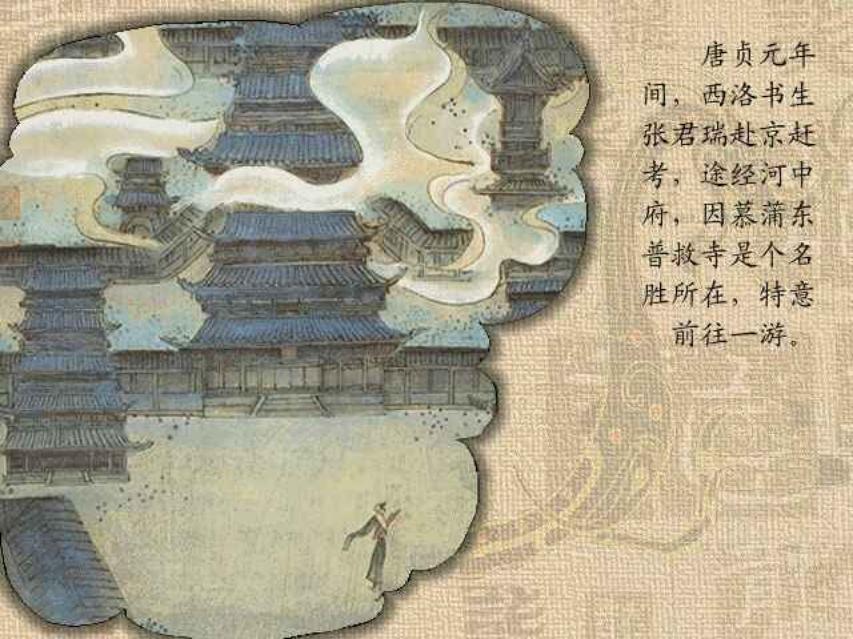 唐贞元年
间，西洛书生
张君瑞赴京赶
考，途经河中
府，因慕蒲东
普救寺是个名
胜所在，特意
前往一游。